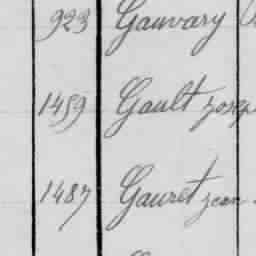 923 Gauvary
1459 Gault Josep
1487 Gauret Jean